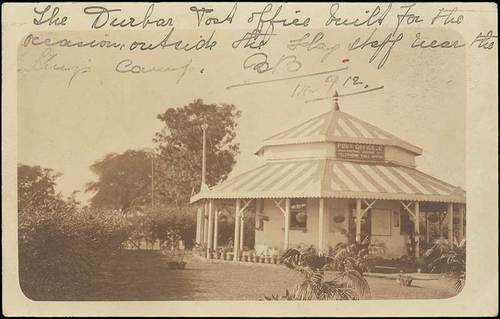 The Durbar Post Office built for the
occasion, outside the Flag staff near the
King's Camp.
BB
9/12.
POST OFFICE
TELEPHONE CALL OFFICE